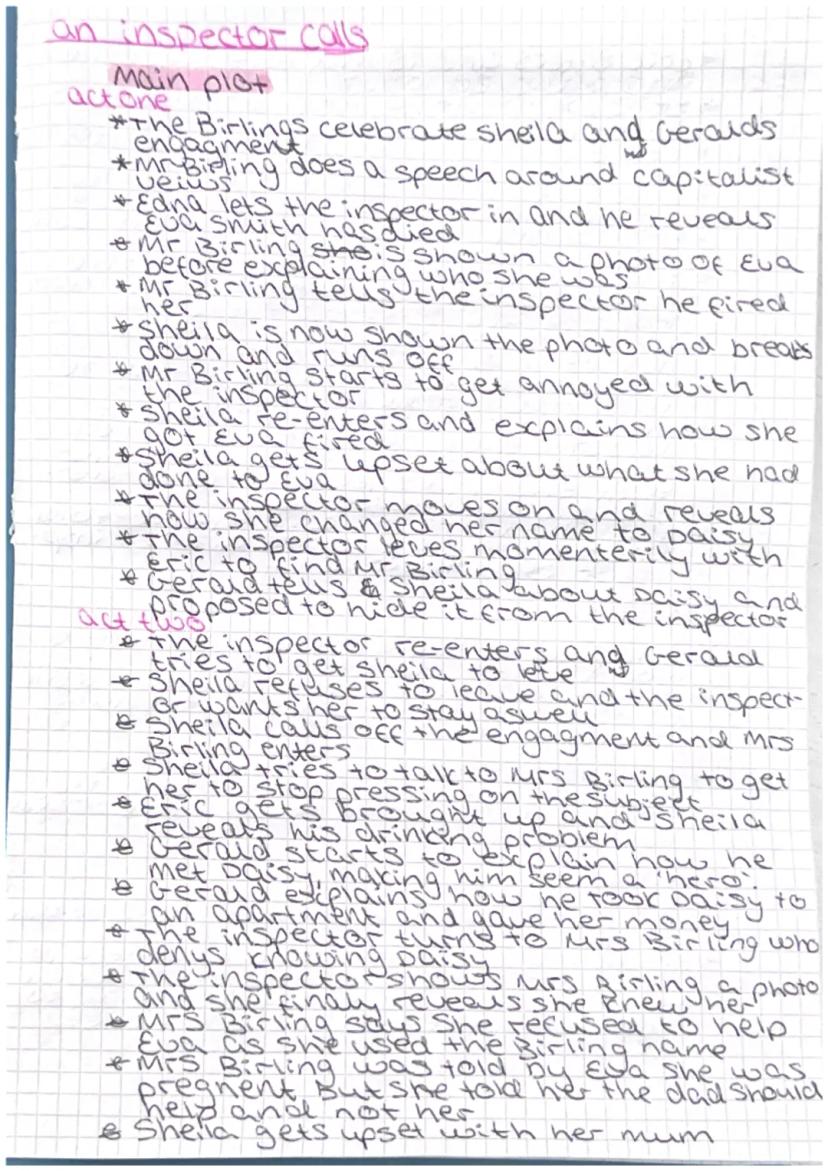 an inspector calls
Main plot
act one
*The Birlings celebrate sheila and Geralds
engagment
*Mr Birling does a speech around capitalist
veiws
*Edna lets the inspector in and he reveals
Eva Smith has died
*Mr Birling she is shown a photo of Eva
before explaining who she was
*Mr Birling tells the inspector he fired
her
*Sheila is now shown the photo and breaks
down and runs off
*Mr Birling starts to get annoyed with
the inspector
*Sheila re-enters and explains how she
got Eva fired
*Sheila gets upset about what she had
done to Eva
*The inspector moves on and reveals
how she changed her name to Daisy
*The inspector leves momenterily with
Eric to find Mr Birling
*Gerald tells Sheila about Daisy and
proposed to hide it from the inspector
act two
*The inspector re-enters and Gerald
tries to get sheila to leve
*Sheila refuses to leave and the inspect-
or wants her to stay aswell
*Sheila calls off the engagment and Mrs
Birling enters
*Sheila tries to talk to Mrs Birling to get
her to stop pressing on the subject
*Eric gets brought up and sheila
reveals his drinking problem
*Gerald starts to explain how he
met Daisy, making him seem a 'hero'.
*Gerald explains how he took Daisy to
an apartment and gave her money
*The inspector turns to Mrs Birling who
denys knowing Daisy
*The inspector shows Mrs Birling a photo
and she finaly reveals she knew her
*Mrs Birling says She refused to help
Eva as she used the Birling name
*Mrs Birling was told by Eva she was
pregnent but she told her the dad should
help and not her
*Sheila gets upset with her mum